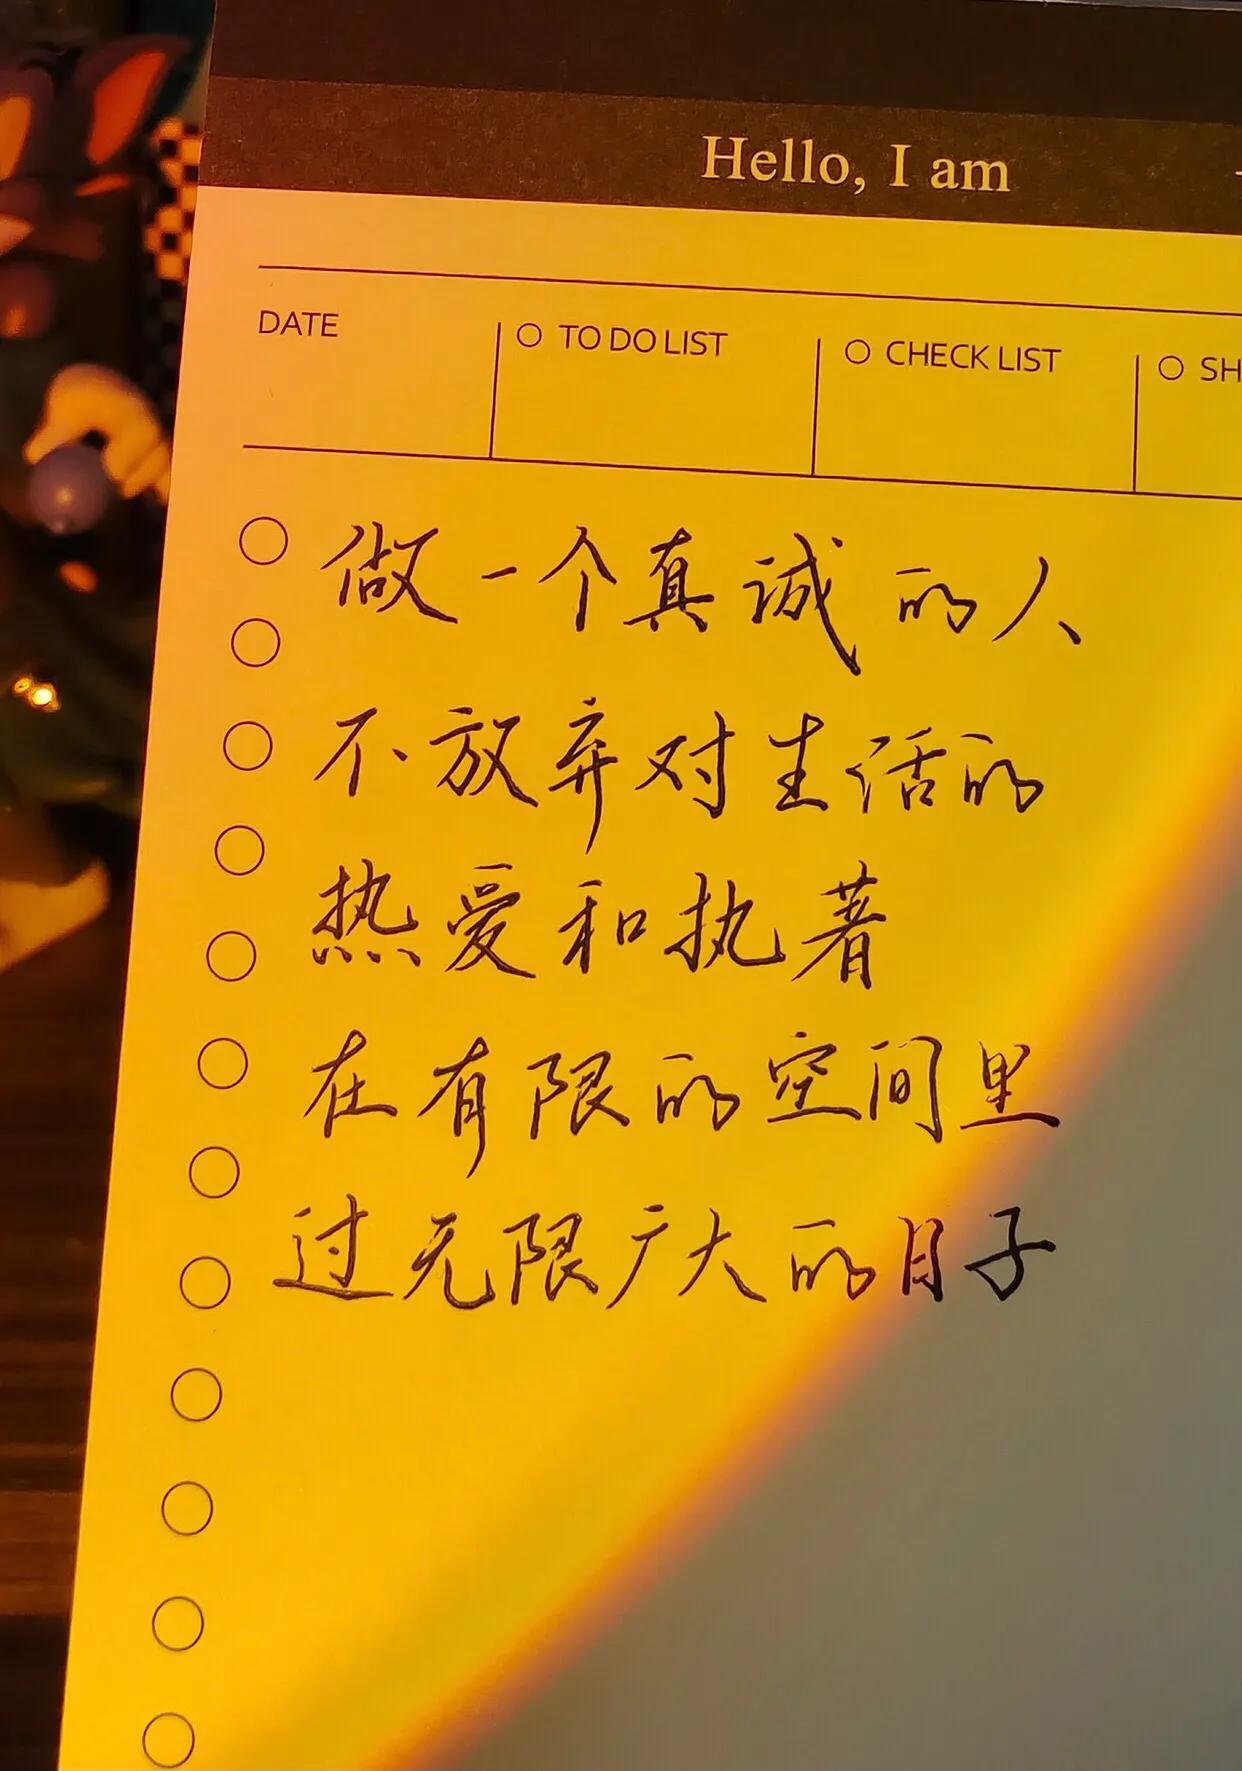 Hello, I am
DATE
TO DO LIST
CHECK LIST
SH
做一个真诚的人
不放弃对生活的
热爱和执著
在有限的空间里
过无限广大的日子